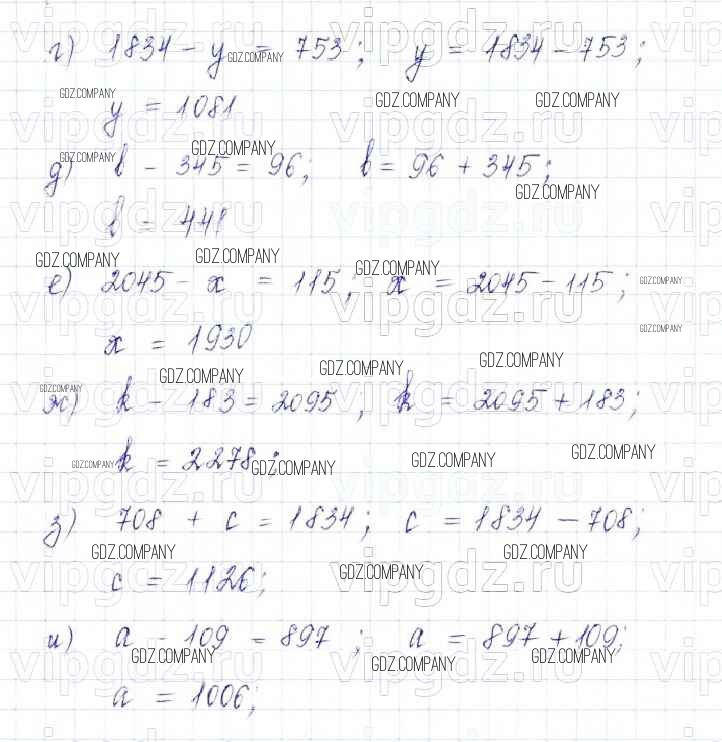 г) 1834 - y = 753; y = 1834 - 753;
y = 1081
д) b - 345 = 96; b = 96 + 345;
b = 441
е) 2045 - x = 115; x = 2045 - 115;
x = 1930
ж) k - 183 = 2095; k = 2095 + 183;
k = 2278;
з) 708 + c = 1834; c = 1834 - 708;
c = 1126;
и) a - 109 = 897; a = 897 + 109;
a = 1006;
vipgdz.ru
GDZ.COMPANY